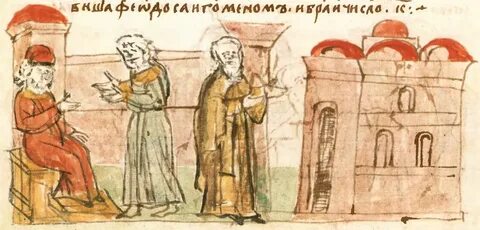 бишафеѡдосаигоменомъ·ибраичисло·к҃·